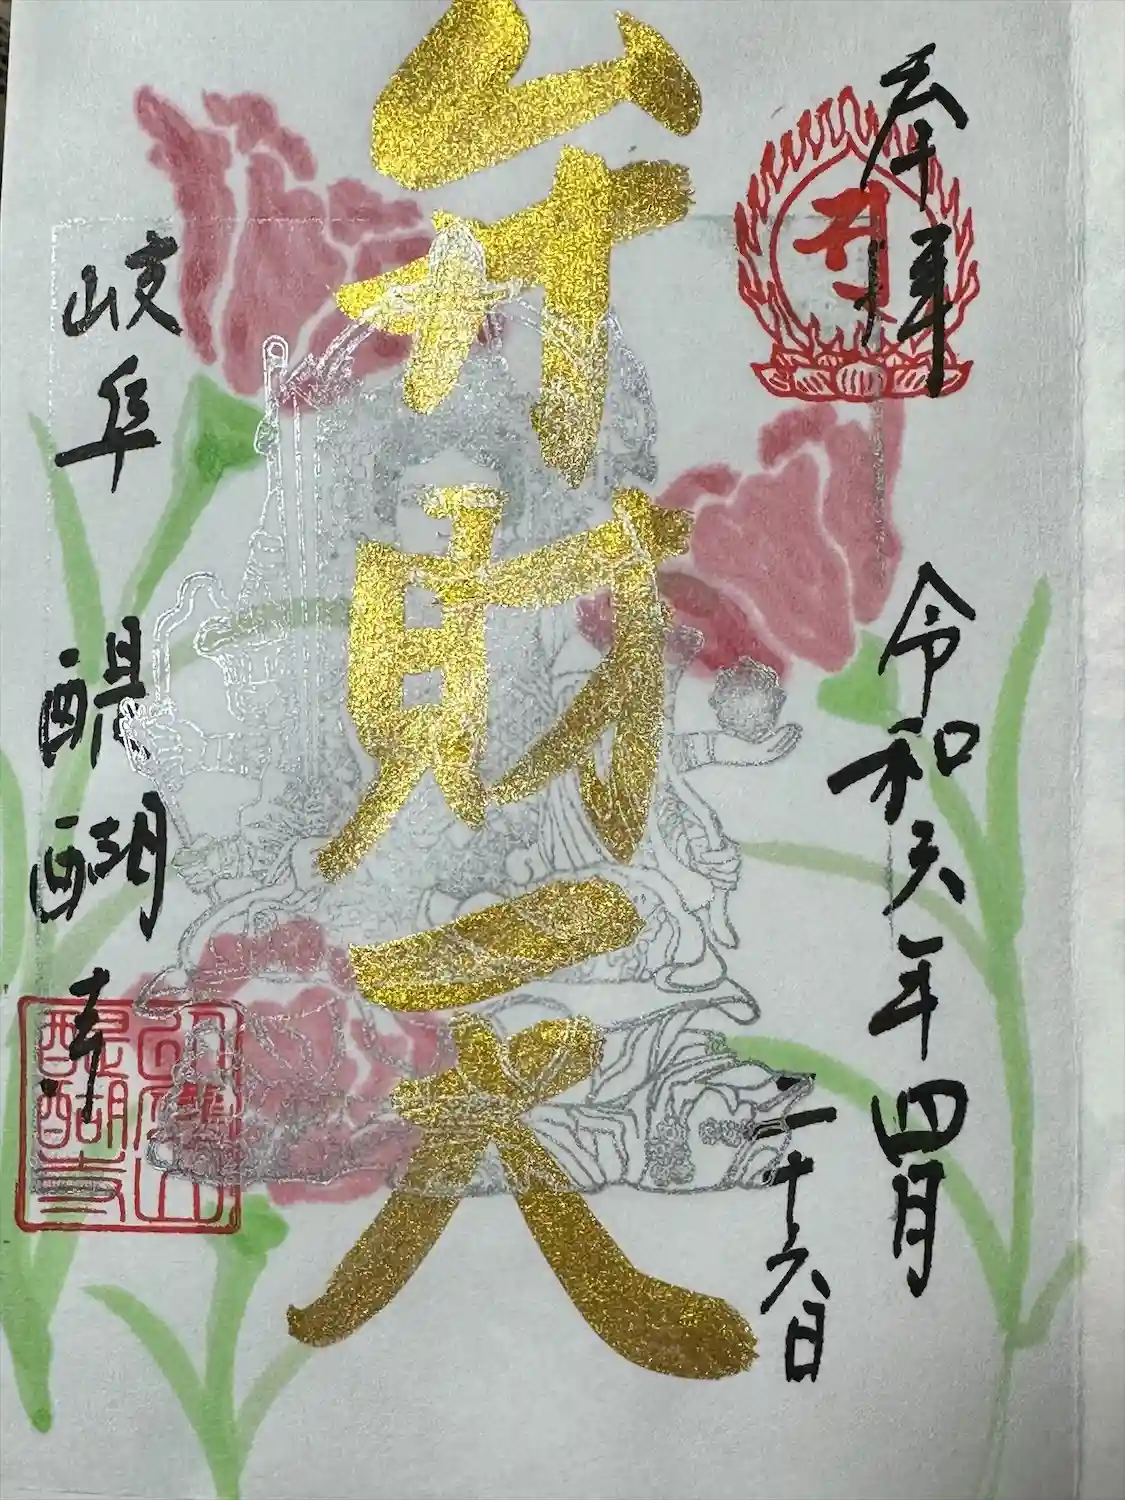 奉拝
令和六年四月
二十六日
弁財天
岐阜
醍醐寺
醍醐寺